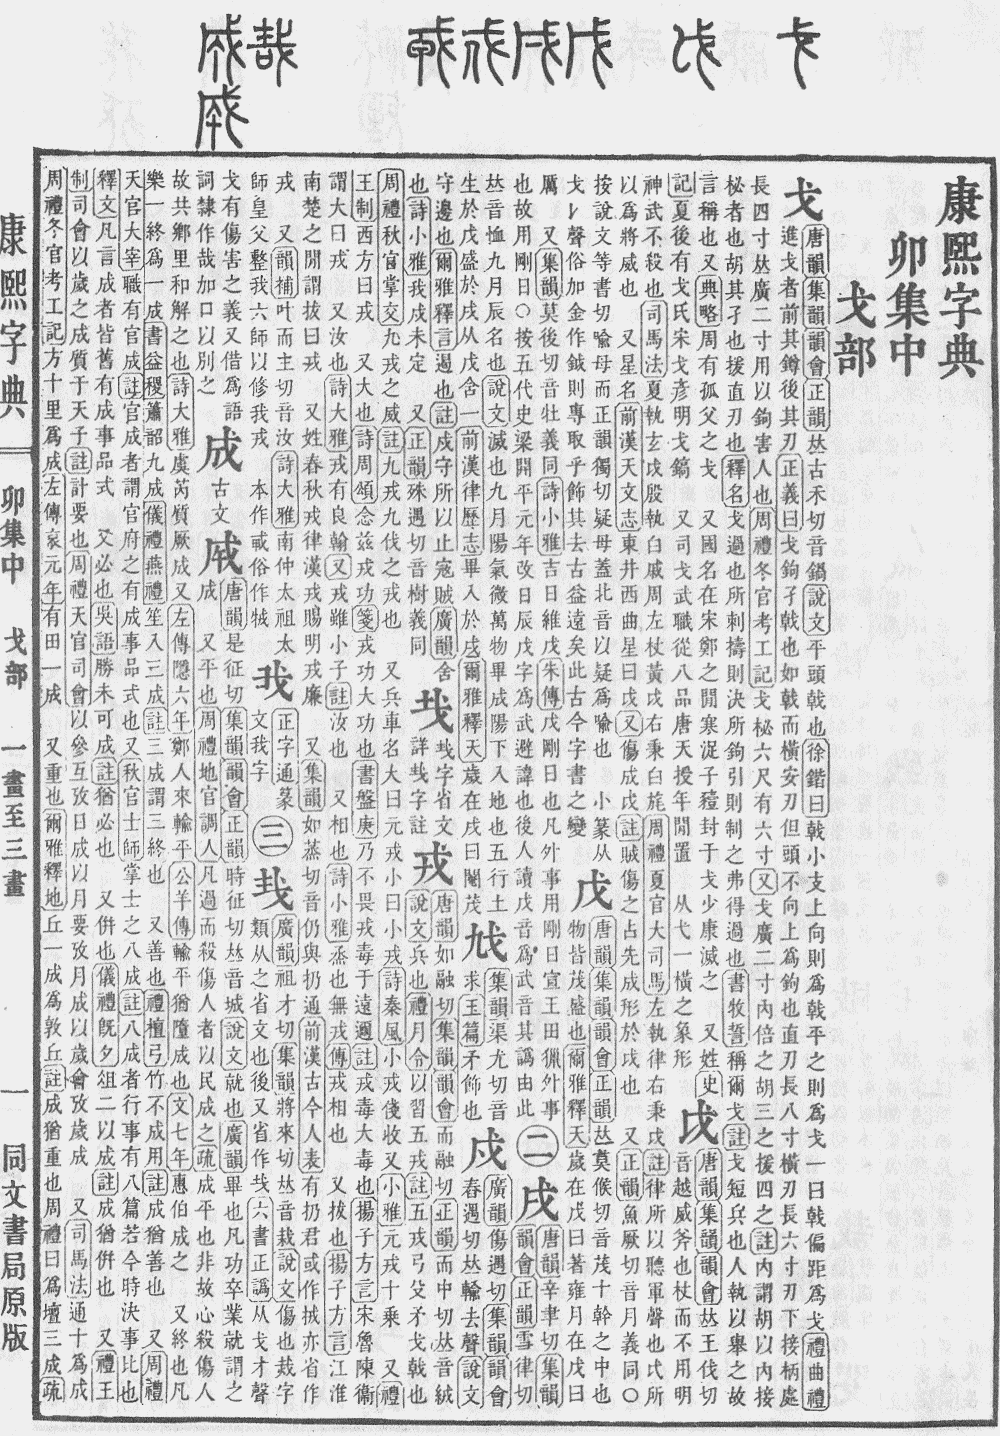 康熙字典
卯集中
戈部
戈唐韻集韻韻會正韻𠀤古禾切音鍋說文平頭戟也徐鍇曰戟小支上向則為戟平之則為戈一曰戟偏距為戈禮曲禮
進戈者前其鐏後其刃正義曰戈鉤孑戟也如戟而橫安刃但頭不向上為鉤也直刃長八寸橫刃長六寸刃下接柄處
長四寸𠀤廣二寸用以鉤害人也周禮冬官考工記戈柲六尺有六寸又戈廣二寸內倍之胡三之援四之註內謂胡以內接
秘者也胡其孑也援直刃也釋名戈過也所刺擣則決所鉤引則制之弗得過也書牧誓稱爾戈註戈短兵也人執以舉之故
言稱也又典略周有孤父之戈 又國名在宋鄭之閒寒浞子豷封于戈少康滅之 又姓史
記夏後有戈氏宋戈彥明戈鎬 又司戈武職從八品唐天授年閒置 从弋一橫之象形
戉唐韻集韻韻會𠀤王伐切
音越威斧也杖而不用明
神武不殺也司馬法夏執玄戉殷執白戚周左杖黃戉右秉白旄周禮夏官大司馬左執律右秉戉註律所以聽軍聲也戉所
以為將威也 又星名前漢天文志東井西曲星曰戉又傷成戉註賊傷之占先成形於戉也 又正韻魚厥切音月義同○
按說文等書切喻母而正韻獨切疑母蓋北音以疑為喻也 小篆从
戈𠄌聲俗加金作鉞則專取乎飾其去古益遠矣此古今字書之變
戊唐韻集韻韻會正韻𠀤莫候切音茂十幹之中也
物皆茂盛也爾雅釋天歲在戊曰著雍月在戊曰
厲又集韻莫後切音牡義同詩小雅吉日維戊朱傳戊剛日也凡外事用剛日宣王田獵外事
也故用剛日○按五代史梁開平元年改日辰戊字為武避諱也後人讀戊音為武音其譌由此
二
戌唐韻辛聿切集韻
韻會正韻雪律切
𠀤音恤九月辰名也說文滅也九月陽氣微萬物畢成陽下入地也五行土
生於戊盛於戌从戊含一前漢律歷志畢入於戌爾雅釋天歲在戌曰閹茂
集韻渠尤切音
求玉篇矛飾也
戍廣韻傷遇切集韻韻會
春遇切𠀤輸去聲說文
守邊也爾雅釋言遏也註戍守所以止寇賊廣韻舍
也詩小雅我戍未定 又正韻殊遇切音樹義同
𢦏字省文
詳𢦏字註
戎唐韻如融切集韻韻會而融切正韻而中切𠀤音絨
說文兵也禮月令以習五戎註五戎弓殳矛戈戟也
周禮秋官掌交九戎之威註九戎九伐之戎也 又兵車名大曰元戎小曰小戎詩秦風小戎俴收又小雅元戎十乘 又禮
王制西方曰戎 又大也詩周頌念茲戎功箋戎功大功也書盤庚乃不畏戎毒于遠邇註戎毒大毒也揚子方言宋魯陳衞
謂大曰戎 又汝也詩大雅戎有良翰又戎雖小子註汝也 又相也詩小雅烝也無戎傳戎相也 又拔也揚子方言江淮
南楚之閒謂拔曰戎 又姓春秋戎律漢戎賜明戎廉 又集韻如蒸切音仍與扔通前漢古今人表有扔君或作㧡亦省作
戎 又韻補叶而主切音汝詩大雅南仲太祖太
師皇父整我六師以修我戎 本作𢦦俗作
正字通篆
文我字
三
𢦏廣韻祖才切集韻將來切𠀤音栽說文傷也𢦏字
類从之省文也後又省作 六書正譌从戈才聲
戈有傷害之義又借為語
詞隸作哉加口以別之
成古文𢦩唐韻是征切集韻韻會正韻時征切𠀤音城說文就也廣韻畢也凡功卒業就謂之
成 又平也周禮地官調人凡過而殺傷人者以民成之疏成平也非故心殺傷人
故共鄉里和解之也詩大雅虞芮質厥成又左傳隱六年鄭人來輸平公羊傳輸平猶隳成也又文七年惠伯成之 又終也凡
樂一終為一成書益稷簫韶九成儀禮燕禮笙入三成註三成謂三終也 又善也禮檀弓竹不成用註成猶善也 又周禮
天官大宰職有官成註官成者謂官府之有成事品式也又秋官士師掌士之八成註八成者行事有八篇若今時決事比也
釋文凡言成者皆舊有成事品式 又必也吳語勝未可成註猶必也 又倂也儀禮旣夕俎二以成註成猶倂也 又禮王
制司會以歲之成質于天子註計要也周禮天官司會以參互攷日成以月要攷月成以歲會攷歲成 又司馬法通十為成
周禮冬官考工記方十里為成左傳哀元年有田一成 又重也爾雅釋地丘一成為敦丘註成猶重也周禮曰為壇三成疏
康熙字典 卯集中 戈部 一畫至三畫 一 同文書局原版